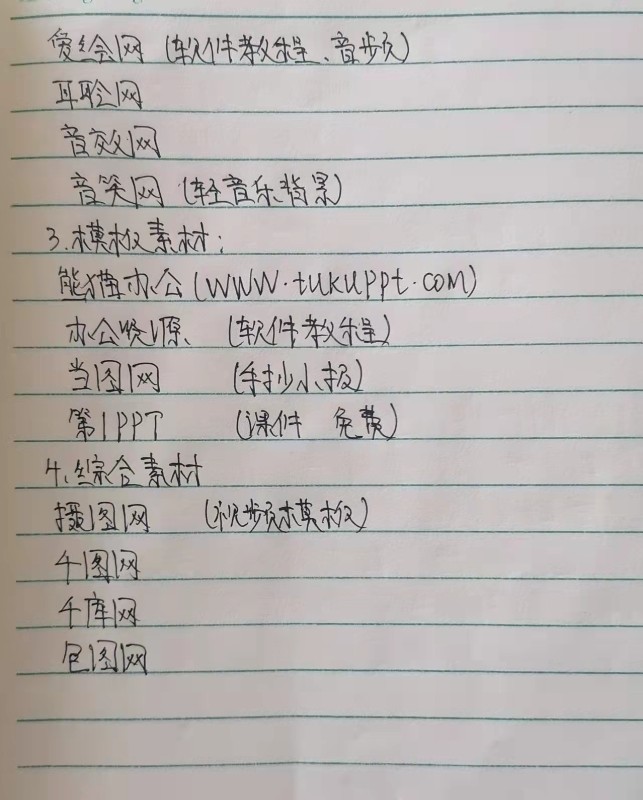 爱绘网（软件教程、音频）
耳聆网
音效网
音笑网（轻音乐背景）
3.模板素材：
熊猫办公(www.tukuppt.com)
办公资源（软件教程）
当图网（手抄小报）
第1PPT（课件 免费）
4.综合素材
摄图网（视频模板）
千图网
千库网
包图网